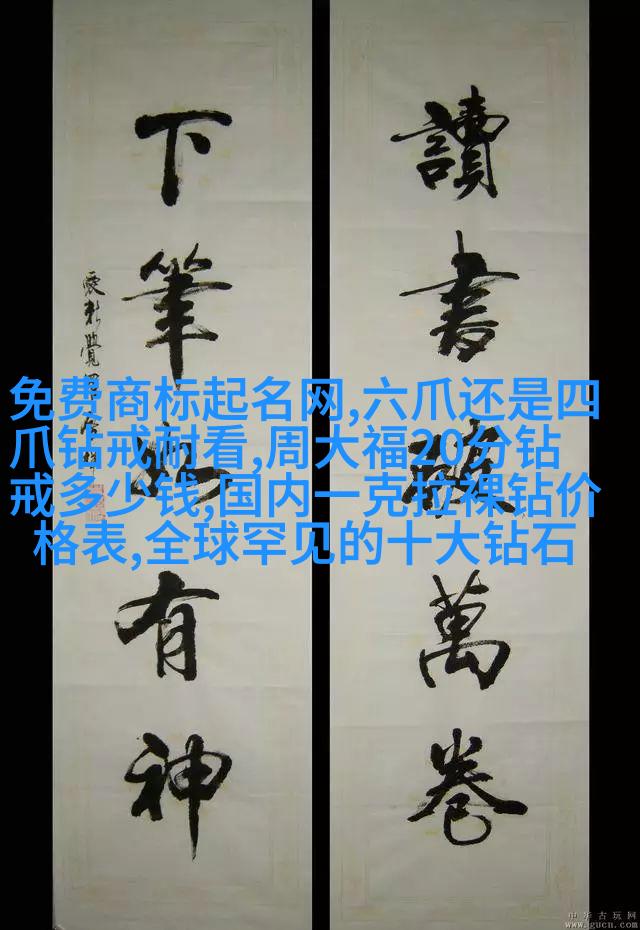 讀書破萬卷
下筆如有神
愛新覺羅
免费商标起名网,六爪还是四
爪钻戒耐看,周大福20分钻
戒多少钱,国内一克拉裸钻价
格表,全球罕见的十大钻石
中华古玩网
www.gucn.com